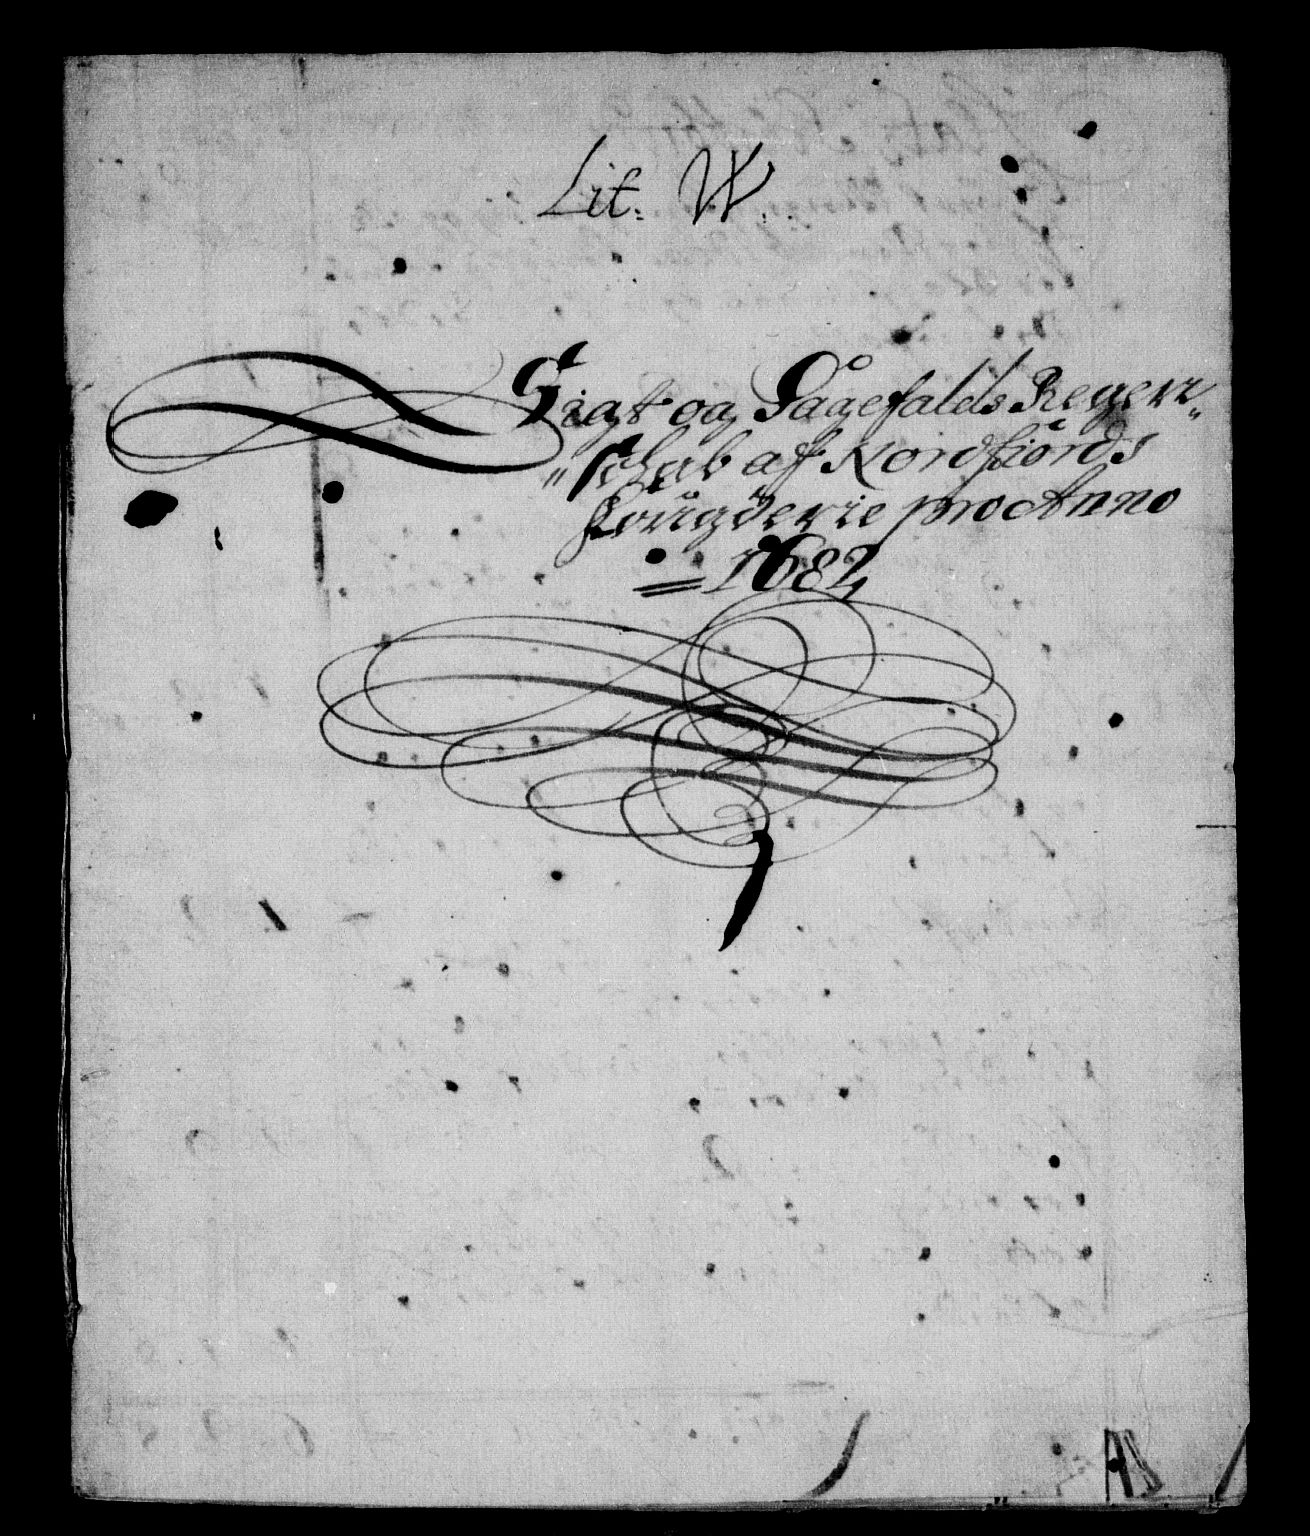 Lit. W.
Sigt og Sagefalds Regen„
„schab aff Nordfiords
fougderie pro Anno
1682